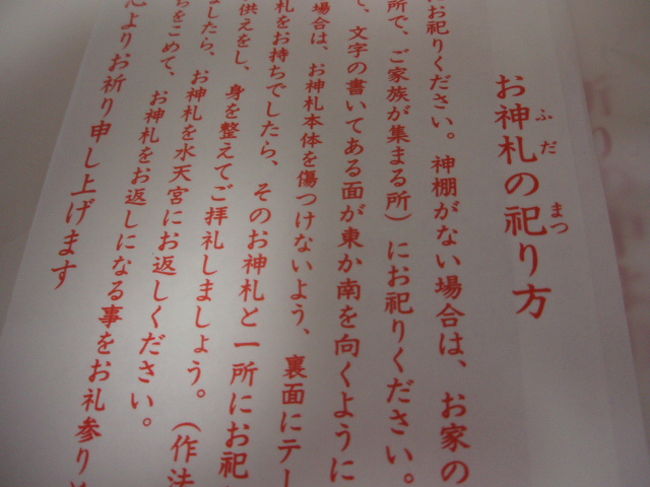 お神札の祀り方
ふだ
まつ
にお祀りください。神棚がない場合は、お家の
所で、ご家族が集まる所）にお祀りください。
て、文字の書いてある面が東か南を向くように
場合は、お神札本体を傷つけないよう、裏面にテー
札をお持ちでしたら、そのお神札と一所にお祀
供えをし、身を整えてご拝礼しましょう。（作法
ましたら、お神札を水天宮にお返しください。
ちをこめて、お神札をお返しになる事をお礼参り
心よりお祈り申し上げます